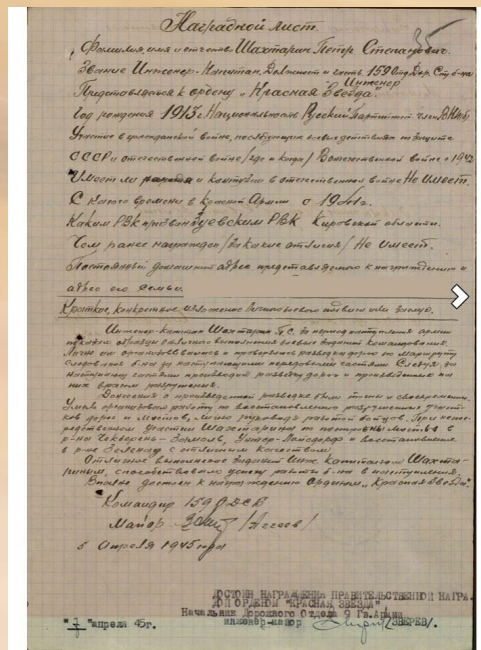 Наградной лист.
35
Фамилия, имя и отчество Шахтарин Петр Степанович.
Звание Инженер-Капитан. Должность и часть 159 Отд. Дор. Стр. б-на
Инженер
Представляется к ордену "Красная Звезда".
Год рождения 1913г. Национальность Русский Партийность член ВКП(б)
Участие в гражданской войне, последующих боевых действиях по защите
СССР и отечественной войне /где и когда/ В отечественной войне с 1942
Имеет ли ранения и контузии в отечественной войне Не имеет.
С какого времени в Красной Армии с 1941г.
Каким РВК призван Зуевским РВК Кировской области.
Чем ранее награжден /за какие отличия/ Не имеет.
Постоянный домашний адрес представляемого к награждению и
адрес его семьи.
Краткое, конкретное изложение личного боевого подвига или заслуг.
Инженер-капитан Шахтарин П.С. за период наступления армии
показал образцы отличного выполнения боевых заданий командования.
Лично им организовывалась и проводилась разведка дорог по маршруту
следования б-на за наступающими передовыми частями. Следуя за
наступающими частями производил разведку дорог и произведенных на
них врагом разрушений.
Донесения о произведенной разведке были точны и своевременны.
Умело организовал работу по восстановлению разрушенных участков
дорог и мостов, лично руководя работой бойцов. При непосредственном
участии Шахтарина построены мосты в
р-не Секвереь-Замоль, Унтер-Лойсдорф и восстановление
в р-не Зеленау с отличным качеством.
Отличное выполнение заданий Инж. Капитаном Шахтариным,
способствовало успеху работы б-на в наступлении.
Вполне достоин к награждению Орденом "Красная Звезда".
Командир 159 ОДСБ
Майор /Агеев/
5 Апреля 1945 года
ДОСТОИН НАГРАЖДЕНИЯ ПРАВИТЕЛЬСТВЕННОЙ НАГРА-
ДОЙ ОРДЕНОМ "КРАСНАЯ ЗВЕЗДА"
Начальник Дорожного Отдела 9 Гв. Армии
инженер-майор /ЗВЕРЕВ/.
"7" апреля 45г.